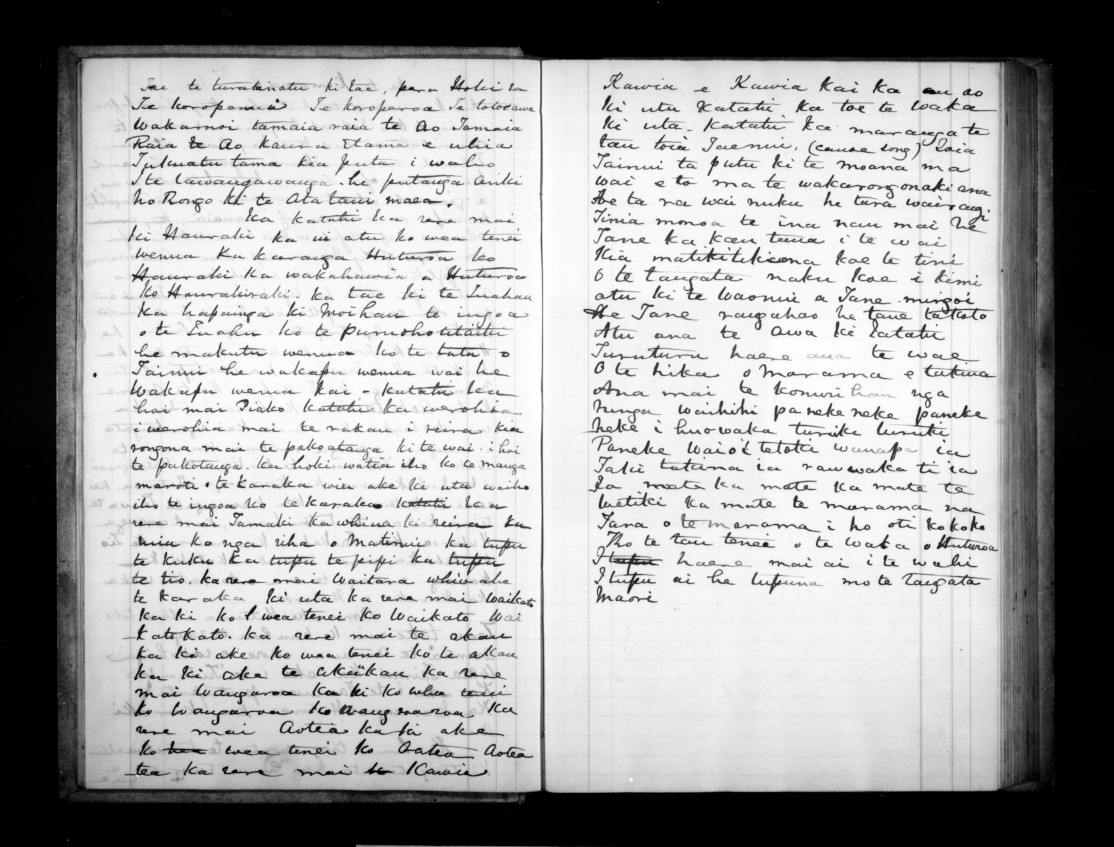 Tae te turakinatu ki tae, pera Hoki ra
Te koropanui Te koroparoa Ta totoeawa
Wakarnoi tamaia raia te Ao Tamaia
Raia te Ao kaura Etama e uhia
Tukuatu tama kia puta i waho
I te tawangawanga. he putanga Ariki
no Rongo Ki te Ata tau maea.
Ka katatu ka rere mai
ki Hauraki ka ui atu ko wea tenei
wenua Ka karanga Huturoa ko
Hauraki ka wakahawia a Huturoa
Ko Haurakiraki. ka tae ki te Tuahau
Ka hapainga ki Moihau te ingoa
o te Tuahu ko te Purnohokutaitu
he makutu wenua ko te tata o
Tainui he wakapu wenua wai he
Wakapu wenua kai. katatu ka
hai mai Piako katatu ka werohia
i werohia mai te rakau i reira kia
rongona mai te pakoatanga ki te wai i hoi
te pakotanga. ka hoki watia iho ko to manga
maroti. te karaka wiu ake ki uta waiho
iho te ingoa ko te karaka katatu ka
rere mai Tamaki ka whiua ki reira ka
niu ko nga riha o Matimui ka tupu
te kuku Ka tupu te pipi ka tupu
te tio. ka rere mai Waitara whiu ake
te karaka ki uta ka rere mai Waikato
Ka ki ko wea tenei ko Waikato Wai
Katokato. ka rere mai te akau
ka ki ake ko wea tenei ko te akau
ka ki ake te Akaukau ka rere
mai Wangaroa ka ki ko wha tenei
ko Wangaroa ko Wangaroaroa Ka
rere mai Aotea ka ki ake
ko wea tenei ko Aotea Aotea
tea ka rere mai Kawia
Kawia e Kawia kai ka au ao
ki utu Katatu ka toe te waka
ki uta. Katatu ka maranga te
tau toia Taenui, (canoe song) Toia
Tainui ta putu ki te moana ma
wai e to ma te wakarongonaki ana
He ta ra wai nuku he tura wairangi
Tinia monoa te ina nau mai he
Tane ka kau tema i te wai
Kia matikitikiona koe te tini
O te tangata naku koe i kimi
atu ki te Waonui a Tane murgoi
He Tane raugahao he tane tekoto
Atu ana te Awa ki Katatu
Turuturu haere ana te wae
O te hika o Marama e tukua
Ana mai te komurihau nga
hunga waihihi pa neke neke paneke
neke i huowaka turuki turuki
Paneke Waioi tetoki wanapa ia
Taki tatama ia rau waka ti ia
Ia mate ka mate ka mate te
Wetiki ka mate te marama na
Tana o te marama i ho oti kokoko
Tho te tau tenei o te waka o Huturoa
I tupu haere mai ai i te wahi
I tupu ai he tupuna mo te Tangata
Maori